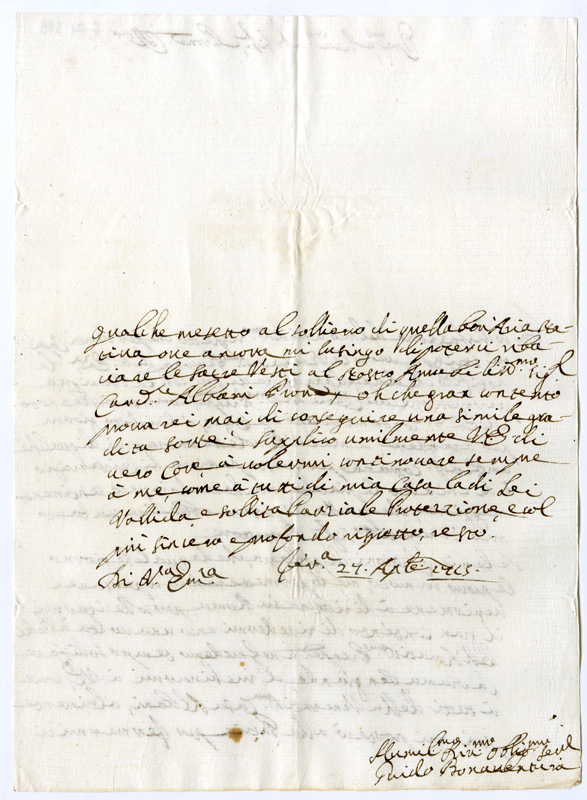 qualche mesetto al sollievo di quella bon'Aria na-
tiva, ove ancora mi lusingo di poterci ribac-
ciare le Sacre Vesti al nostro Amabilis.mo Sig.r
Card.le Albani Pron oh che gran contento
provarei mai di conseguire una simile gra-
dita sorte: supplico umilmente V.E. di
vero Core à volermi continovare sempre
à me, come à tutti di mia Casa la di Lei
Vallida, e sollita Parziale Protezzione, e col
più sincero e profondo rispetto, resto.
Di V.ra Em.za 27. 1765.
Humil.mo Div.mo Oblig.mo Serv.
Guido Bonaventura